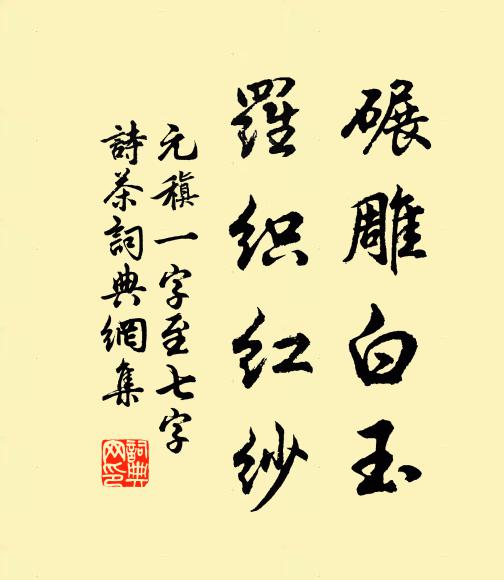 碾雕白玉
羅织红纱
元稹一字至七字
詩茶詞典網集
詞典
网印